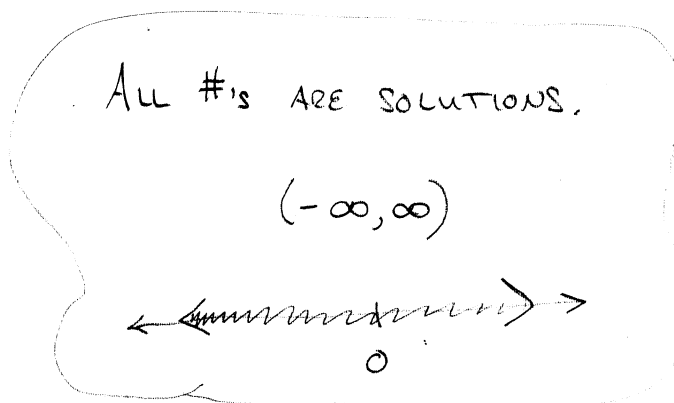 ALL #'s ARE SOLUTIONS.
(-∞, ∞)
0